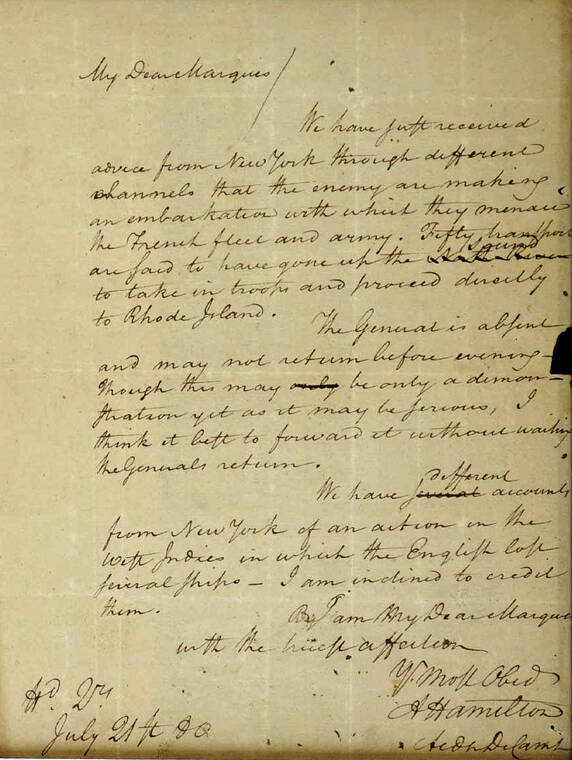 My Dear Marquis
We have just received
advice from New York through different
channels that the enemy are making
an embarkation with which they menace
the French fleet and army. Fifty transports
Sound
are said to have gone up the
to take in troops and proceed directly
to Rhode Island.
The General is absent
and may not return before evening—
Though this may only be only a demon-
stration yet as it may be serious, I
think it best to forward it without waiting
the Generals return.
different
We have several accounts
from New York of an action in the
West Indies in which the English lost
several ships — I am inclined to credit
them.
I am My Dear Marquis
with the truest affection
Yr. Most Obed
A Hamilton
Aide De Camp
Hd. Qrs
July 21st 80